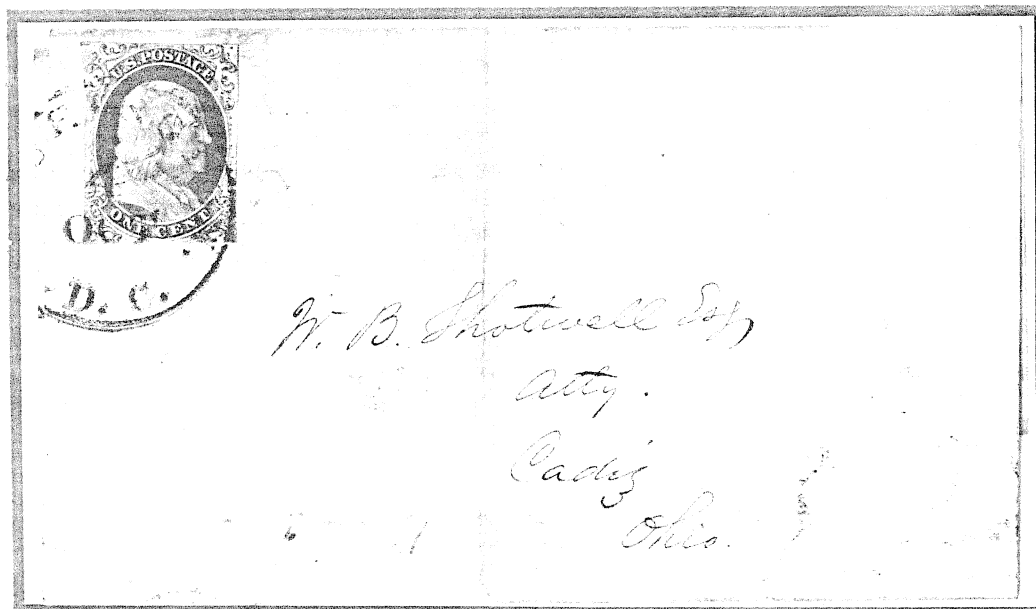 U.S. POSTAGE
ONE CENT
D. C.
W. B. Shotwell Esq,
Atty.
Cadiz
Ohio.